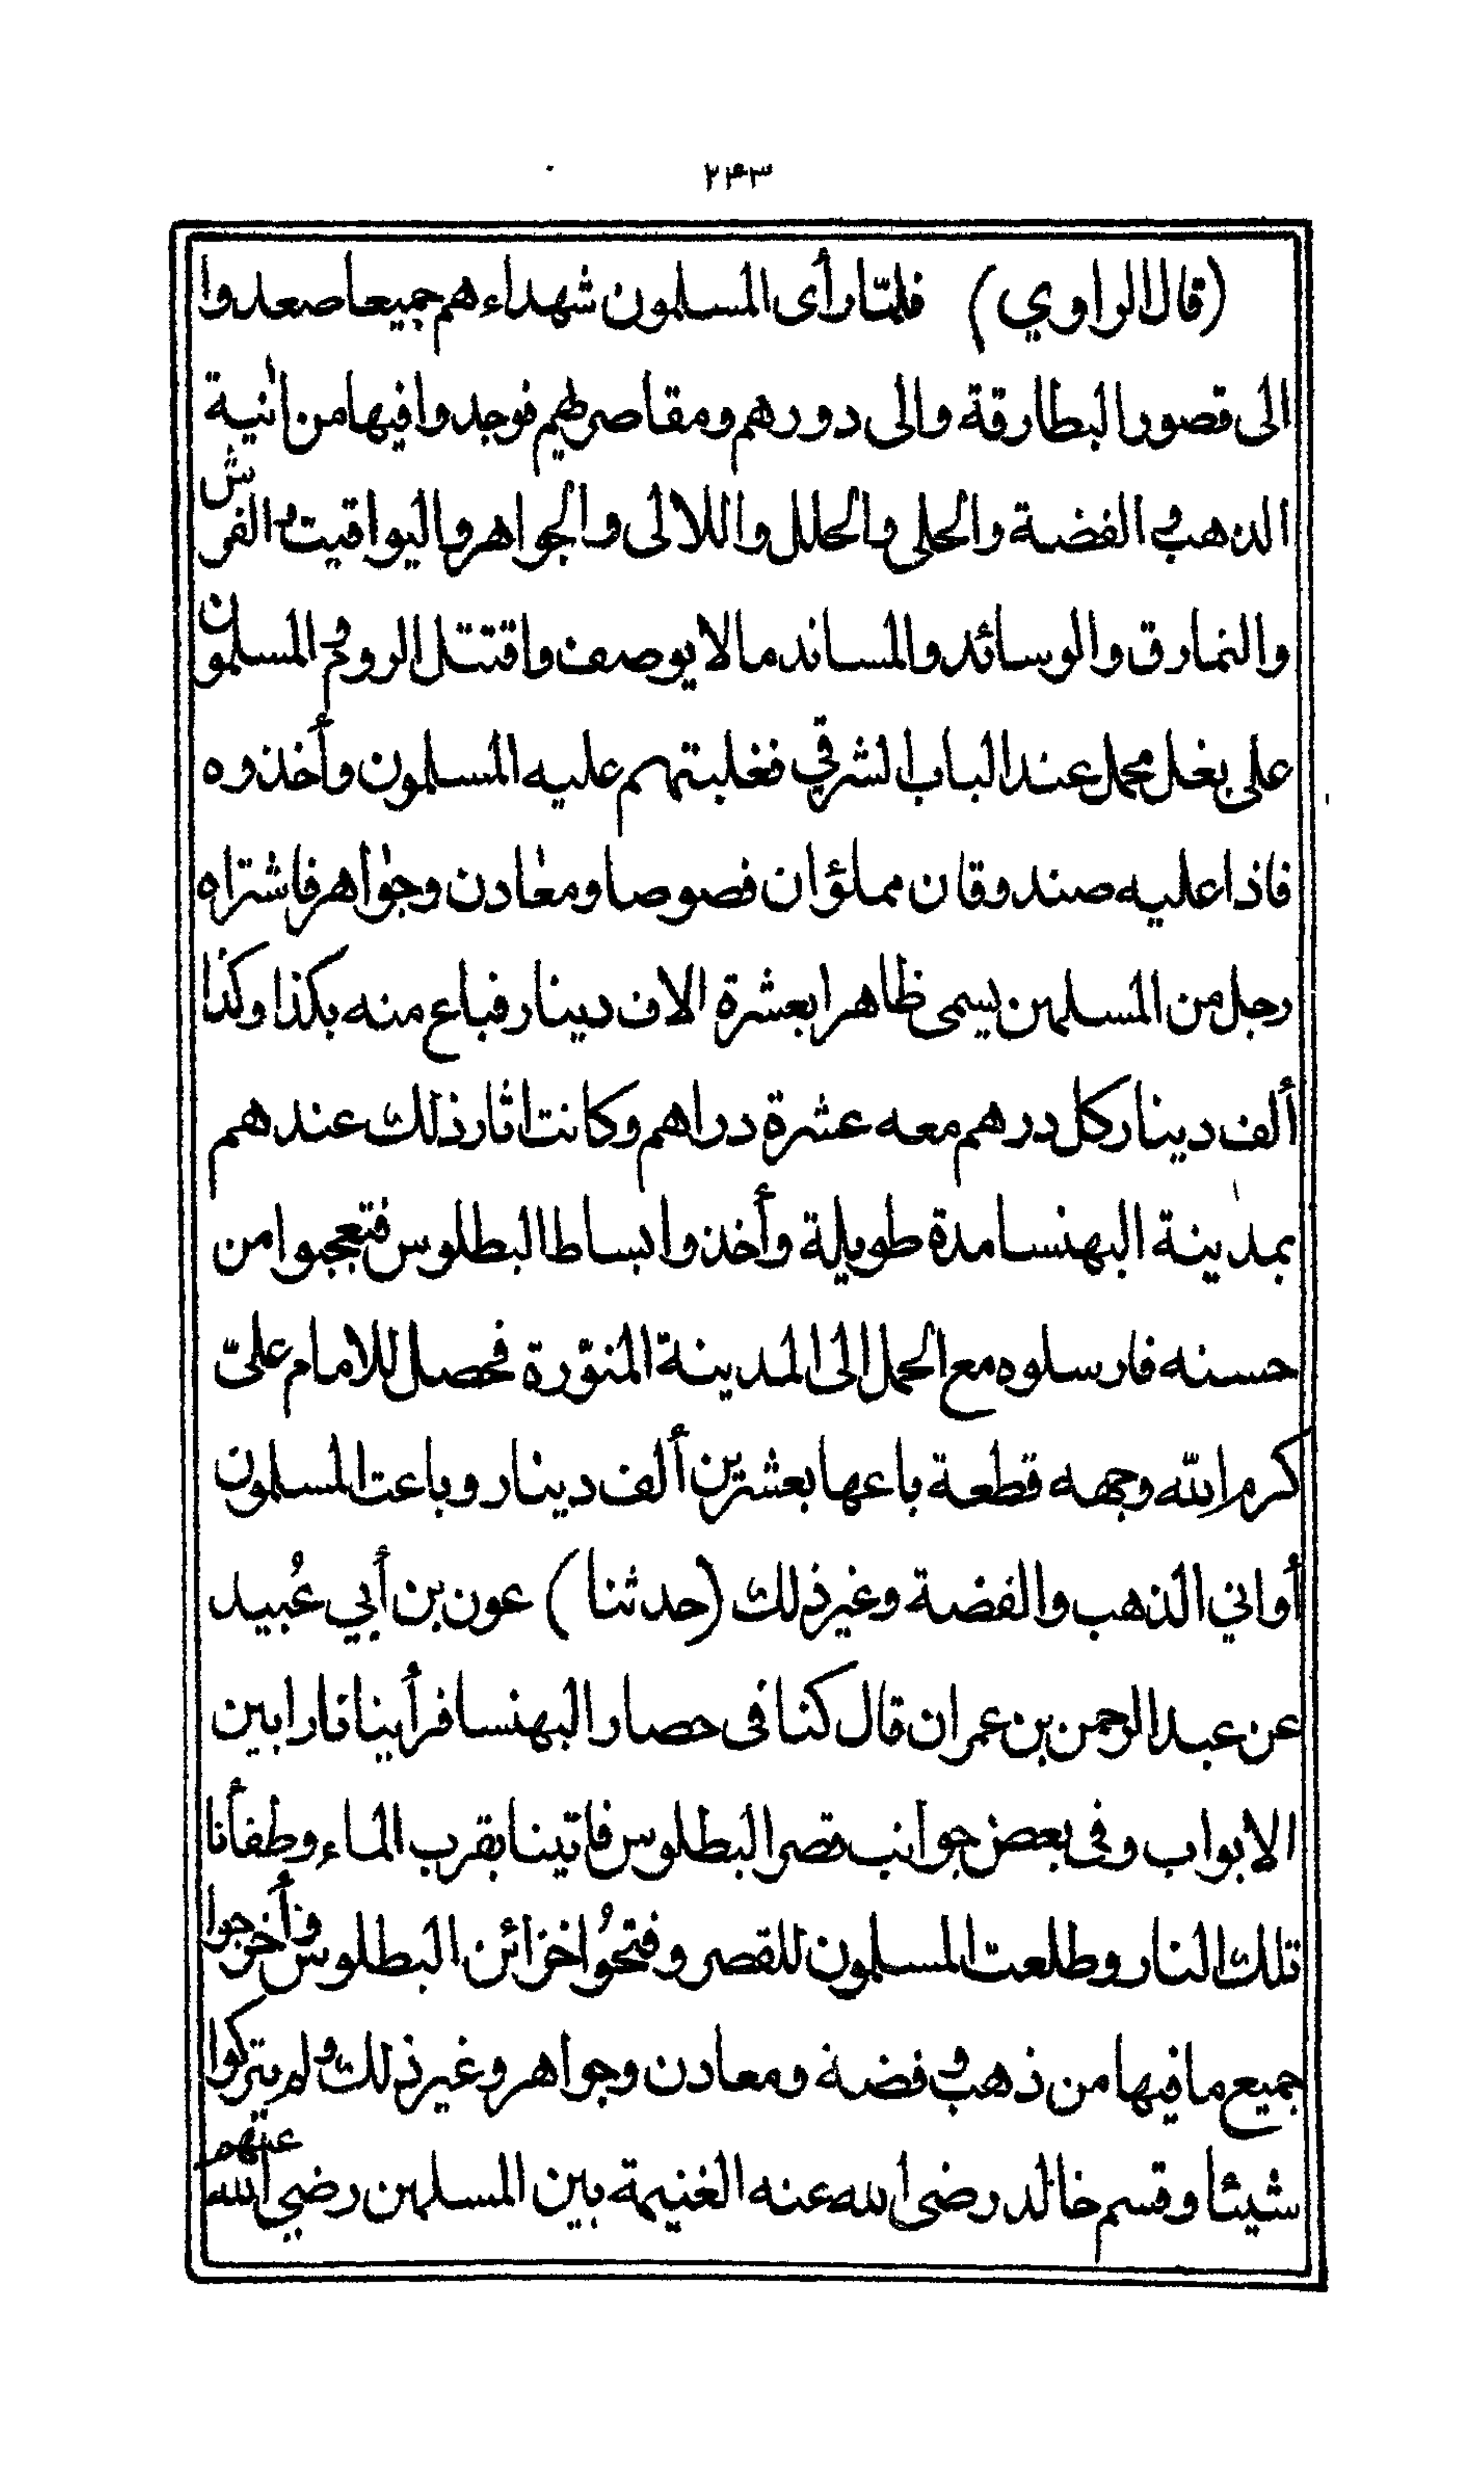 ٢٤٣
(قال الراوي) فلمّا رأى المسلمون شهداءهم جميعا صعدوا
الى قصور البطارقة والى دورهم ومقاصرهم فوجدوا فيها من انية
الذهب والفضة والحلي والحلل واللالى والجواهر واليواقيت والفرش
والنمارق والوسائد والمساند مالا يوصف واقتتل الروم والمسلمون
على بغل محمل عند الباب الشرقي فغلبتهم عليه المسلمون وأخذوه
فاذا عليه صندوقان مملؤان فصوصا ومعادن وجواهر فاشتراه
رجل من المسلمين يسمى ظاهرا بعشرة الاف دينار فباع منه بكذا وكذا
ألف دينار كل درهم معه عشرة دراهم وكانت اثار ذلك عندهم
بمدينة البهنسا مدة طويلة وأخذوا بساط البطلوس فتعجبوا من
حسنه فارسلوه مع الحمل الى المدينة المنوّرة فحصل للامام علىّ
كرم الله وجهه قطعة باعها بعشرين ألف دينار وباعت المسلمون
أواني الذهب والفضة وغير ذلك (حدثنا) عون بن أبي عُبيد
عن عبد الرحمن بن عمران قال كنا فى حصار البهنسا فرأينا نارا بين
الابواب وفى بعض جوانب قصر البطلوس فاتينا بقرب الماء وطفأنا
تلك النار وطلعت المسلمون للقصر وفتحُوا خزائن البطلوس وأخرجوا
جميع مافيها من ذهب وفضة ومعادن وجواهر وغير ذلك ولم يتركوا
شيئا وقسم خالد رضى الله عنه الغنيمة بين المسلمين رضي الله عنهم